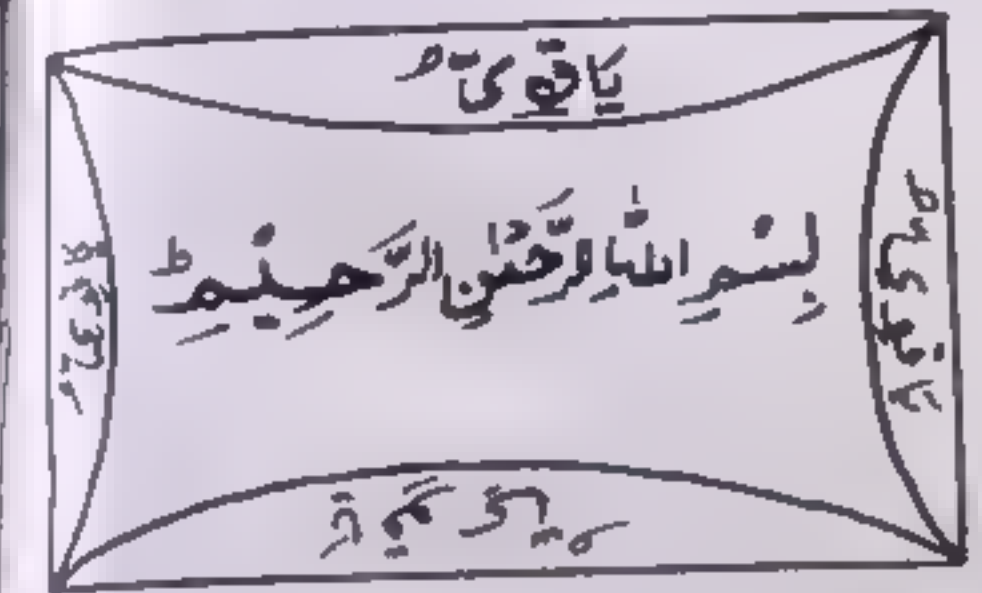 يَا قَوِیُّ
بِسْمِ اللّٰہِ الرَّحْمٰنِ الرَّحِیْمِ ط
يَا قَوِیُّ
يَا قَوِیُّ
يَا قَوِیُّ